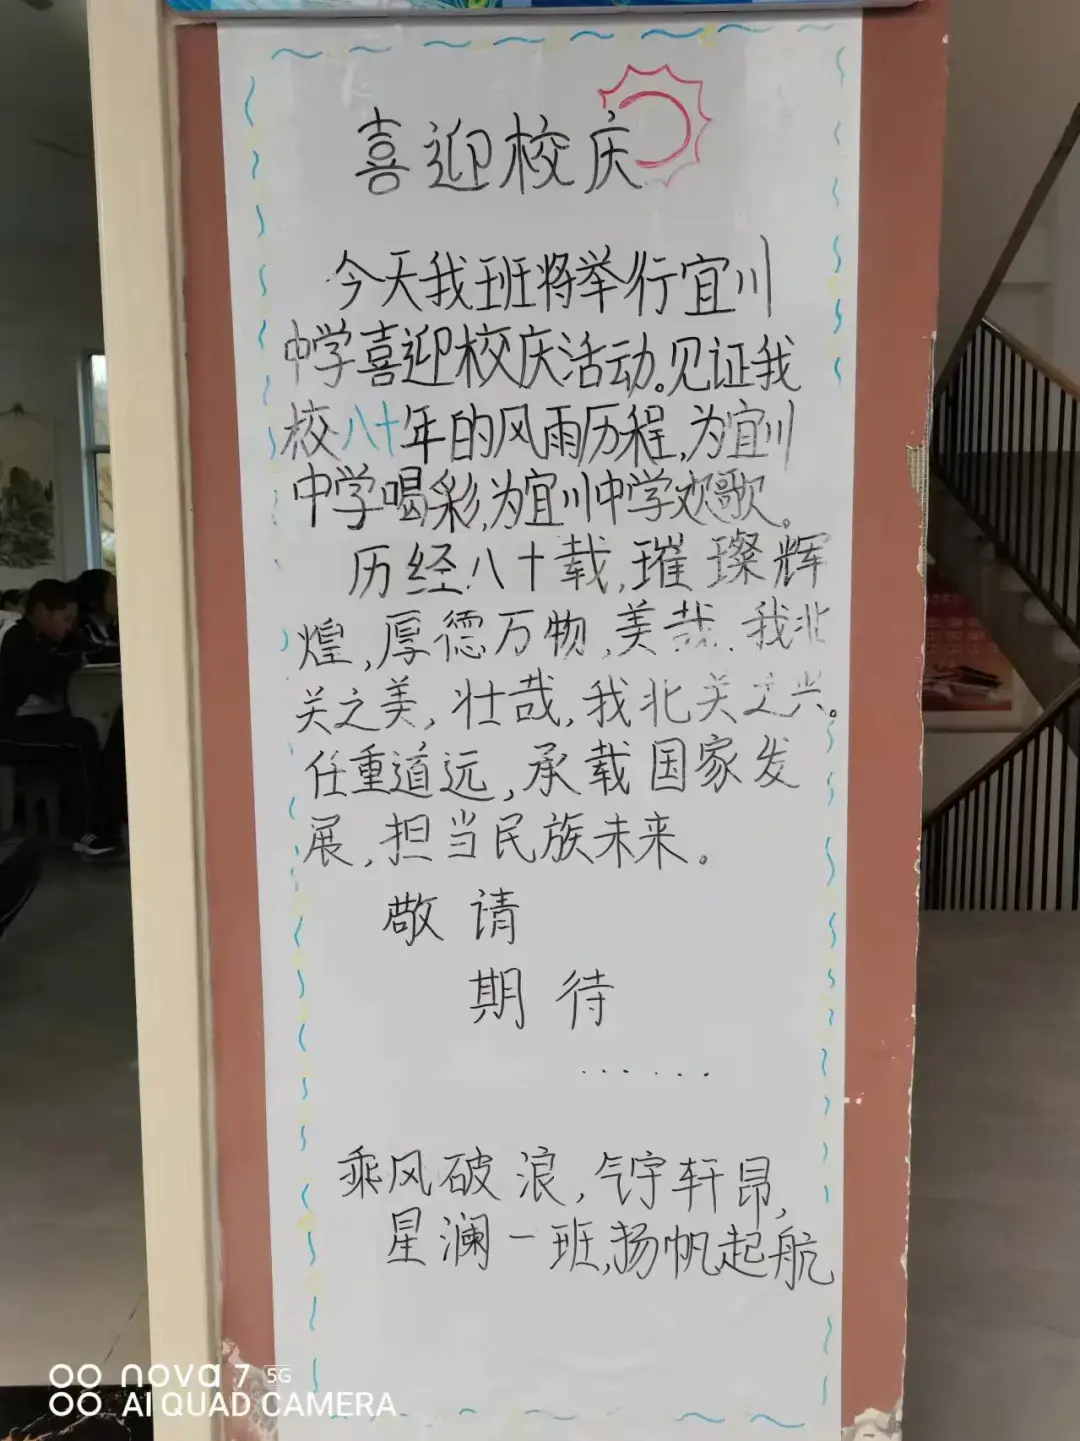 喜迎校庆
今天我班将举行宜川
中学喜迎校庆活动。见证我
校八十年的风雨历程,为宜川
中学喝彩,为宜川中学欢歌。
历经八十载,璀璨辉
煌,厚德万物,美哉,我北
关之美,壮哉,我北关之兴。
任重道远,承载国家发
展,担当民族未来。
敬请
期待
......
乘风破浪,气宇轩昂,
星澜一班,扬帆起航
nova 7 5G
AI QUAD CAMERA